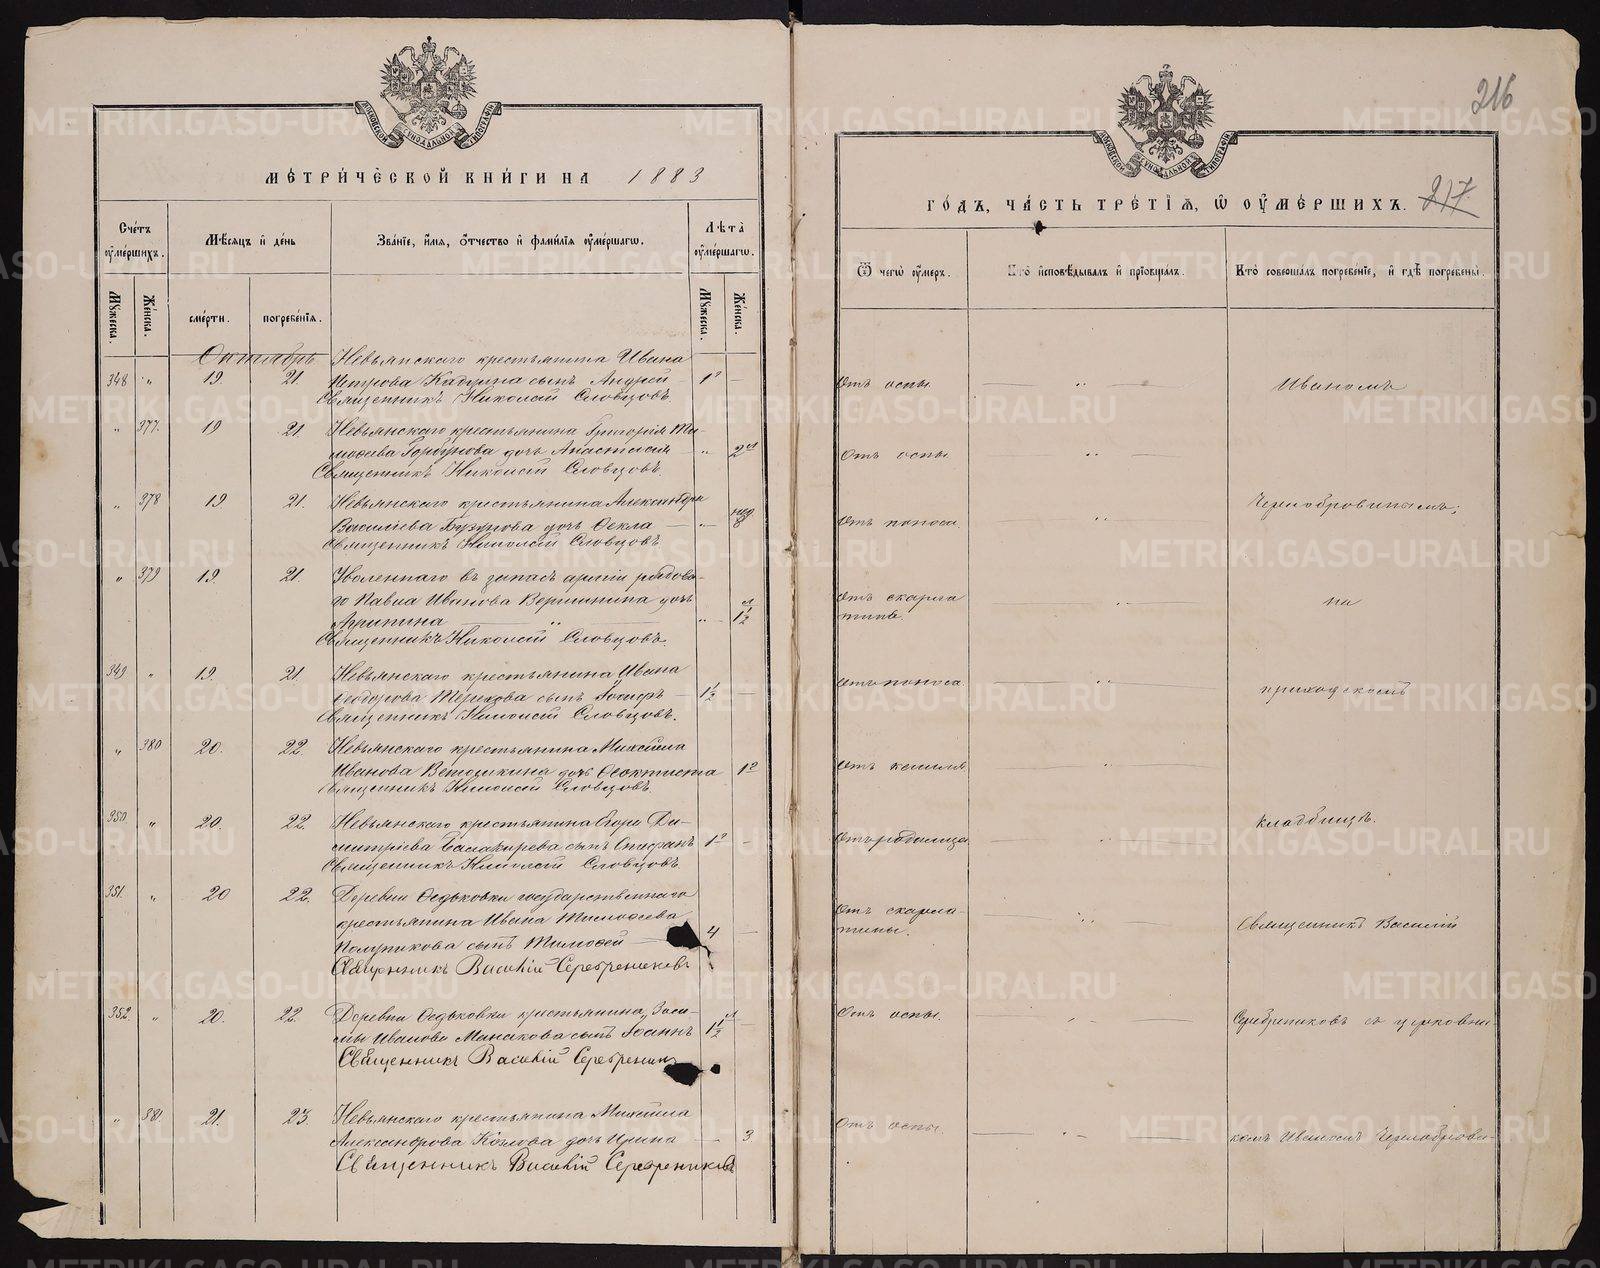 МЕТРИЧЕСКОЙ КНИГИ НА 1883
Счетъ умершихъ.
Мѣсяцъ и день
Званіе, имя, отчество и фамилія умершаго.
Лѣта умершаго.
Мужеска.
Женска.
смерти.
погребенія.
Мужеска.
Женска.
Октябрь
Невьянскаго крестьянина Ивана
348 " 19. 21. Петрова сынъ Андрей 1
Священникъ Николай Словцовъ.
" 377. 19 21. Невьянскаго крестьянина Григорія Ти-
моѳеева Горбунова дочь Анастасія " 2
Священникъ Николай Словцовъ.
" 378 19 21. Невьянскаго крестьянина Александра
Васильева дочь Ѳекла — " нед 8
Священникъ Николай Словцовъ.
" 379 19. 21. Уволеннаго въ запасъ арміи рядова-
го Павла Иванова Вершинина дочь
Агрипина " — " 1½
Священникъ Николай Словцовъ.
349 " 19. 21. Невьянскаго крестьянина Ивана
Ѳеодорова Терихова сынъ Іосифъ — 1½ —
Священникъ Николай Словцовъ.
" 380 20. 22. Невьянскаго крестьянина Михаила
Иванова Ветошкина дочь Ѳеоктиста 1
Священникъ Николай Словцовъ
350. " 20. 22. Невьянскаго крестьянина Егора Ди-
митріева Балакирева сынъ Стефанъ 1 —
Священникъ Николай Словцовъ
351. " 20 22. Деревни Ѳедьковки государственнаго
крестьянина Ивана Тимоѳеева
сынъ Тимоѳей — 4 —
Священникъ Василій Серебрениковъ
352. " 20. 22. Деревни Ѳедьковки крестьянина
Иванова Минакова сынъ Іоаннъ 1½ —
Священникъ Василій Серебреник
" 381. 21. 23. Невьянскаго крестьянина Михаила
Александрова Козлова дочь Ирина — 3.
Священникъ Василій Серебрениковъ
МОСКОВСКОЙ СѴНОДАЛЬНОЙ ТИПОГРАФІИ
216
ГОДЪ, ЧАСТЬ ТРЕТІЯ, Ѡ УМЕРШИХЪ. 217
Ѿ чегѡ умеръ.
Кто исповѣдывалъ и пріобщалъ.
Кто совершалъ погребеніе, и гдѣ погребены.
Отъ оспы. — " — Иваномъ
Отъ оспы. "
Чернобровинымъ;
Отъ поноса. "
Отъ скарла
тины. — " — на
Отъ поноса. — " — приходскомъ
Отъ кашля. "
кладбищѣ.
Отъ родимца. — " —
Отъ скарла-
тины. — " — Священникъ Василій
Отъ оспы. — " — Серебрениковъ съ церковни-
Отъ оспы. — " — комъ Иваномъ Черноброви-